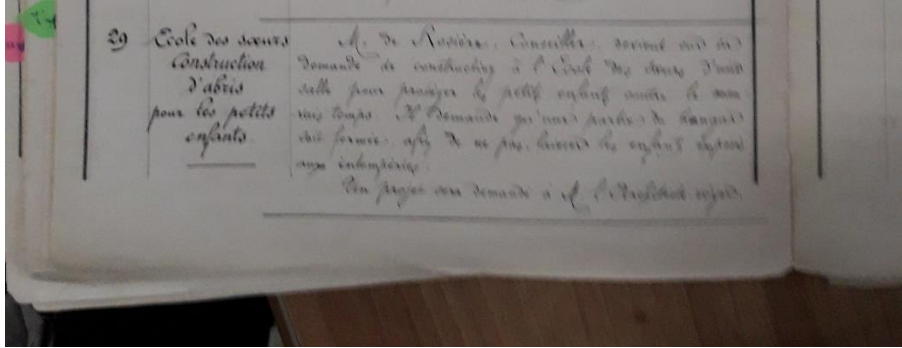 29
Ecole des sœurs
Construction
d'abris
pour les petits
enfants
M. de Rosière, Conseiller, revient sur sa
demande de construction à l'Ecole des sœurs d'une
salle pour protéger les petits enfants contre le mau
vais temps. Il demande qu'une partie du hangar
soit fermée, afin de ne pas laisser les enfants exposés
aux intempéries.
Un projet sera demandé à M. l'Architecte